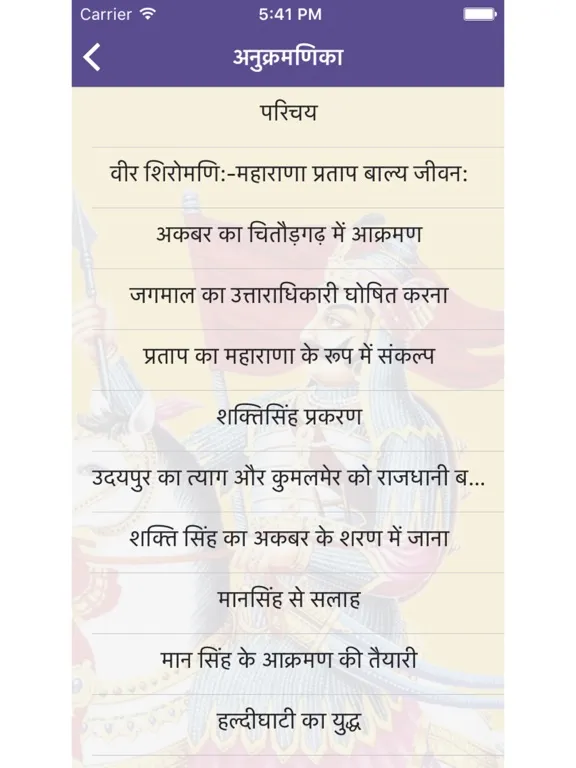 Carrier 5:41 PM
अनुक्रमणिका
परिचय
वीर शिरोमणि:-महाराणा प्रताप बाल्य जीवन:
अकबर का चितौड़गढ़ में आक्रमण
जगमाल का उत्ताराधिकारी घोषित करना
प्रताप का महाराणा के रूप में संकल्प
शक्तिसिंह प्रकरण
उदयपुर का त्याग और कुमलमेर को राजधानी ब...
शक्ति सिंह का अकबर के शरण में जाना
मानसिंह से सलाह
मान सिंह के आक्रमण की तैयारी
हल्दीघाटी का युद्ध